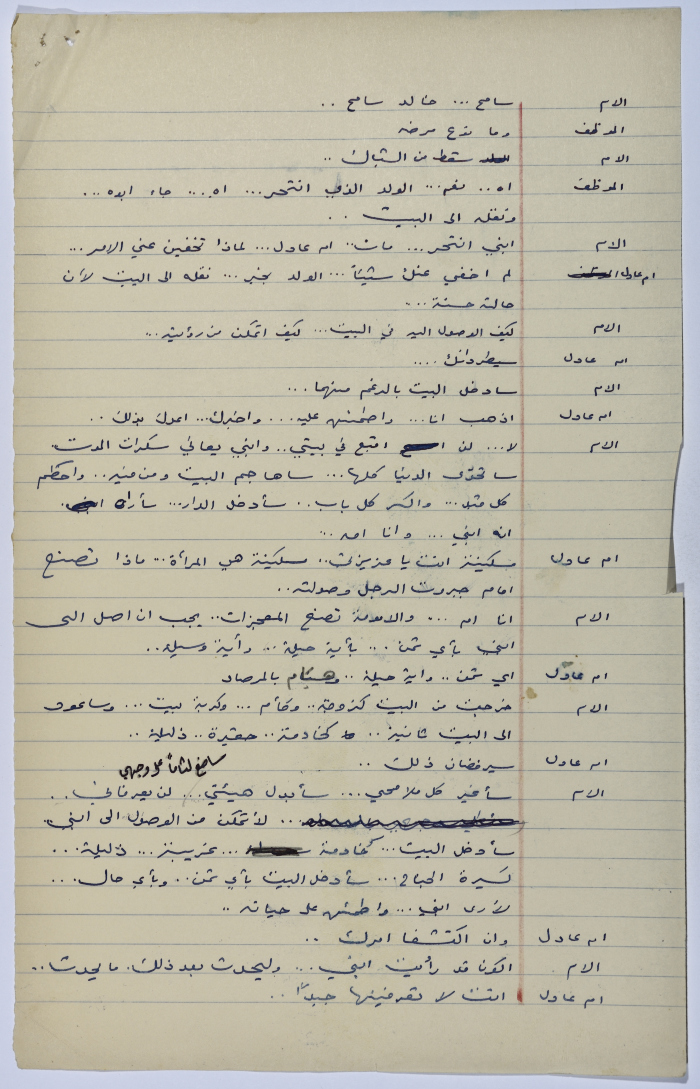 الام سامح ... خالد سامح ..
الموظف وما نوع مرضه
الام سقط من الشباك ..
الموظف اه .. نعم ... الولد الذي انتحر ... اه ... جاء ابوه ...
ونقله الى البيت ..
الام ابني انتحر ... مات .. ام عادل ... لماذا تخفين عني الامر ...
ام عادل لم اخفي عنك شيئاً ... الولد بخير ... نقله الى البيت لأن
حالته حسنة ...
الام كيف الوصول اليه في البيت ... كيف اتمكن من رؤيته ...
ام عادل سيطردانك ....
الام سادخل البيت بالرغم منهما ...
ام عادل اذهب انا ... واطمئن عليه ... واخبرك ... اعدك بذلك ..
الام لا ... لن اقبع في بيتي .. وابني يعاني سكرات الموت .
ساتحدى الدنيا كلها ... ساهاجم البيت ومن فيه .. واحطم
كل شيء ... واكسر كل باب .. سأدخل الدار ... سأراه
انه ابني ... وانا امه ...
ام عادل مسكينة انت يا عزيزتي .. مسكينة هي المرأة ... ماذا تصنع
امام جبروت الرجل وصولته ..
الام انا ام ... والامومة تصنع المعجزات .. يجب ان اصل الى
ابني بأي ثمن ... بأية حيلة ... وأية وسيلة ..
ام عادل اي ثمن .. واية حيلة .. وهيام بالمرصاد
الام خرجت من البيت كزوجة .. وكأم ... وكربة بيت ... وساعود
الى البيت ثانية .. كخادمة .. حقيرة .. ذليلة ..
ام عادل سيرفضان ذلك ..
ساضع لثاماً على وجهي
الام سأغير كل ملامحي ... سأبدل هيئتي ... لن يعرفاني ..
... لأتمكن من الوصول الى ابني .
سأدخل البيت ... كخادمة ... غريبة ... ذليلة ...
كسيرة الجناح ... سأدخل البيت بأي ثمن .. وبأي حال ...
لأرى ابني ... واطمئن على حياته ..
ام عادل وان اكتشفا امرك ..
الام اكون قد رأيت ابني ... وليحدث بعد ذلك ما يحدث ..
ام عادل انت لا تعرفينها جيداً ..